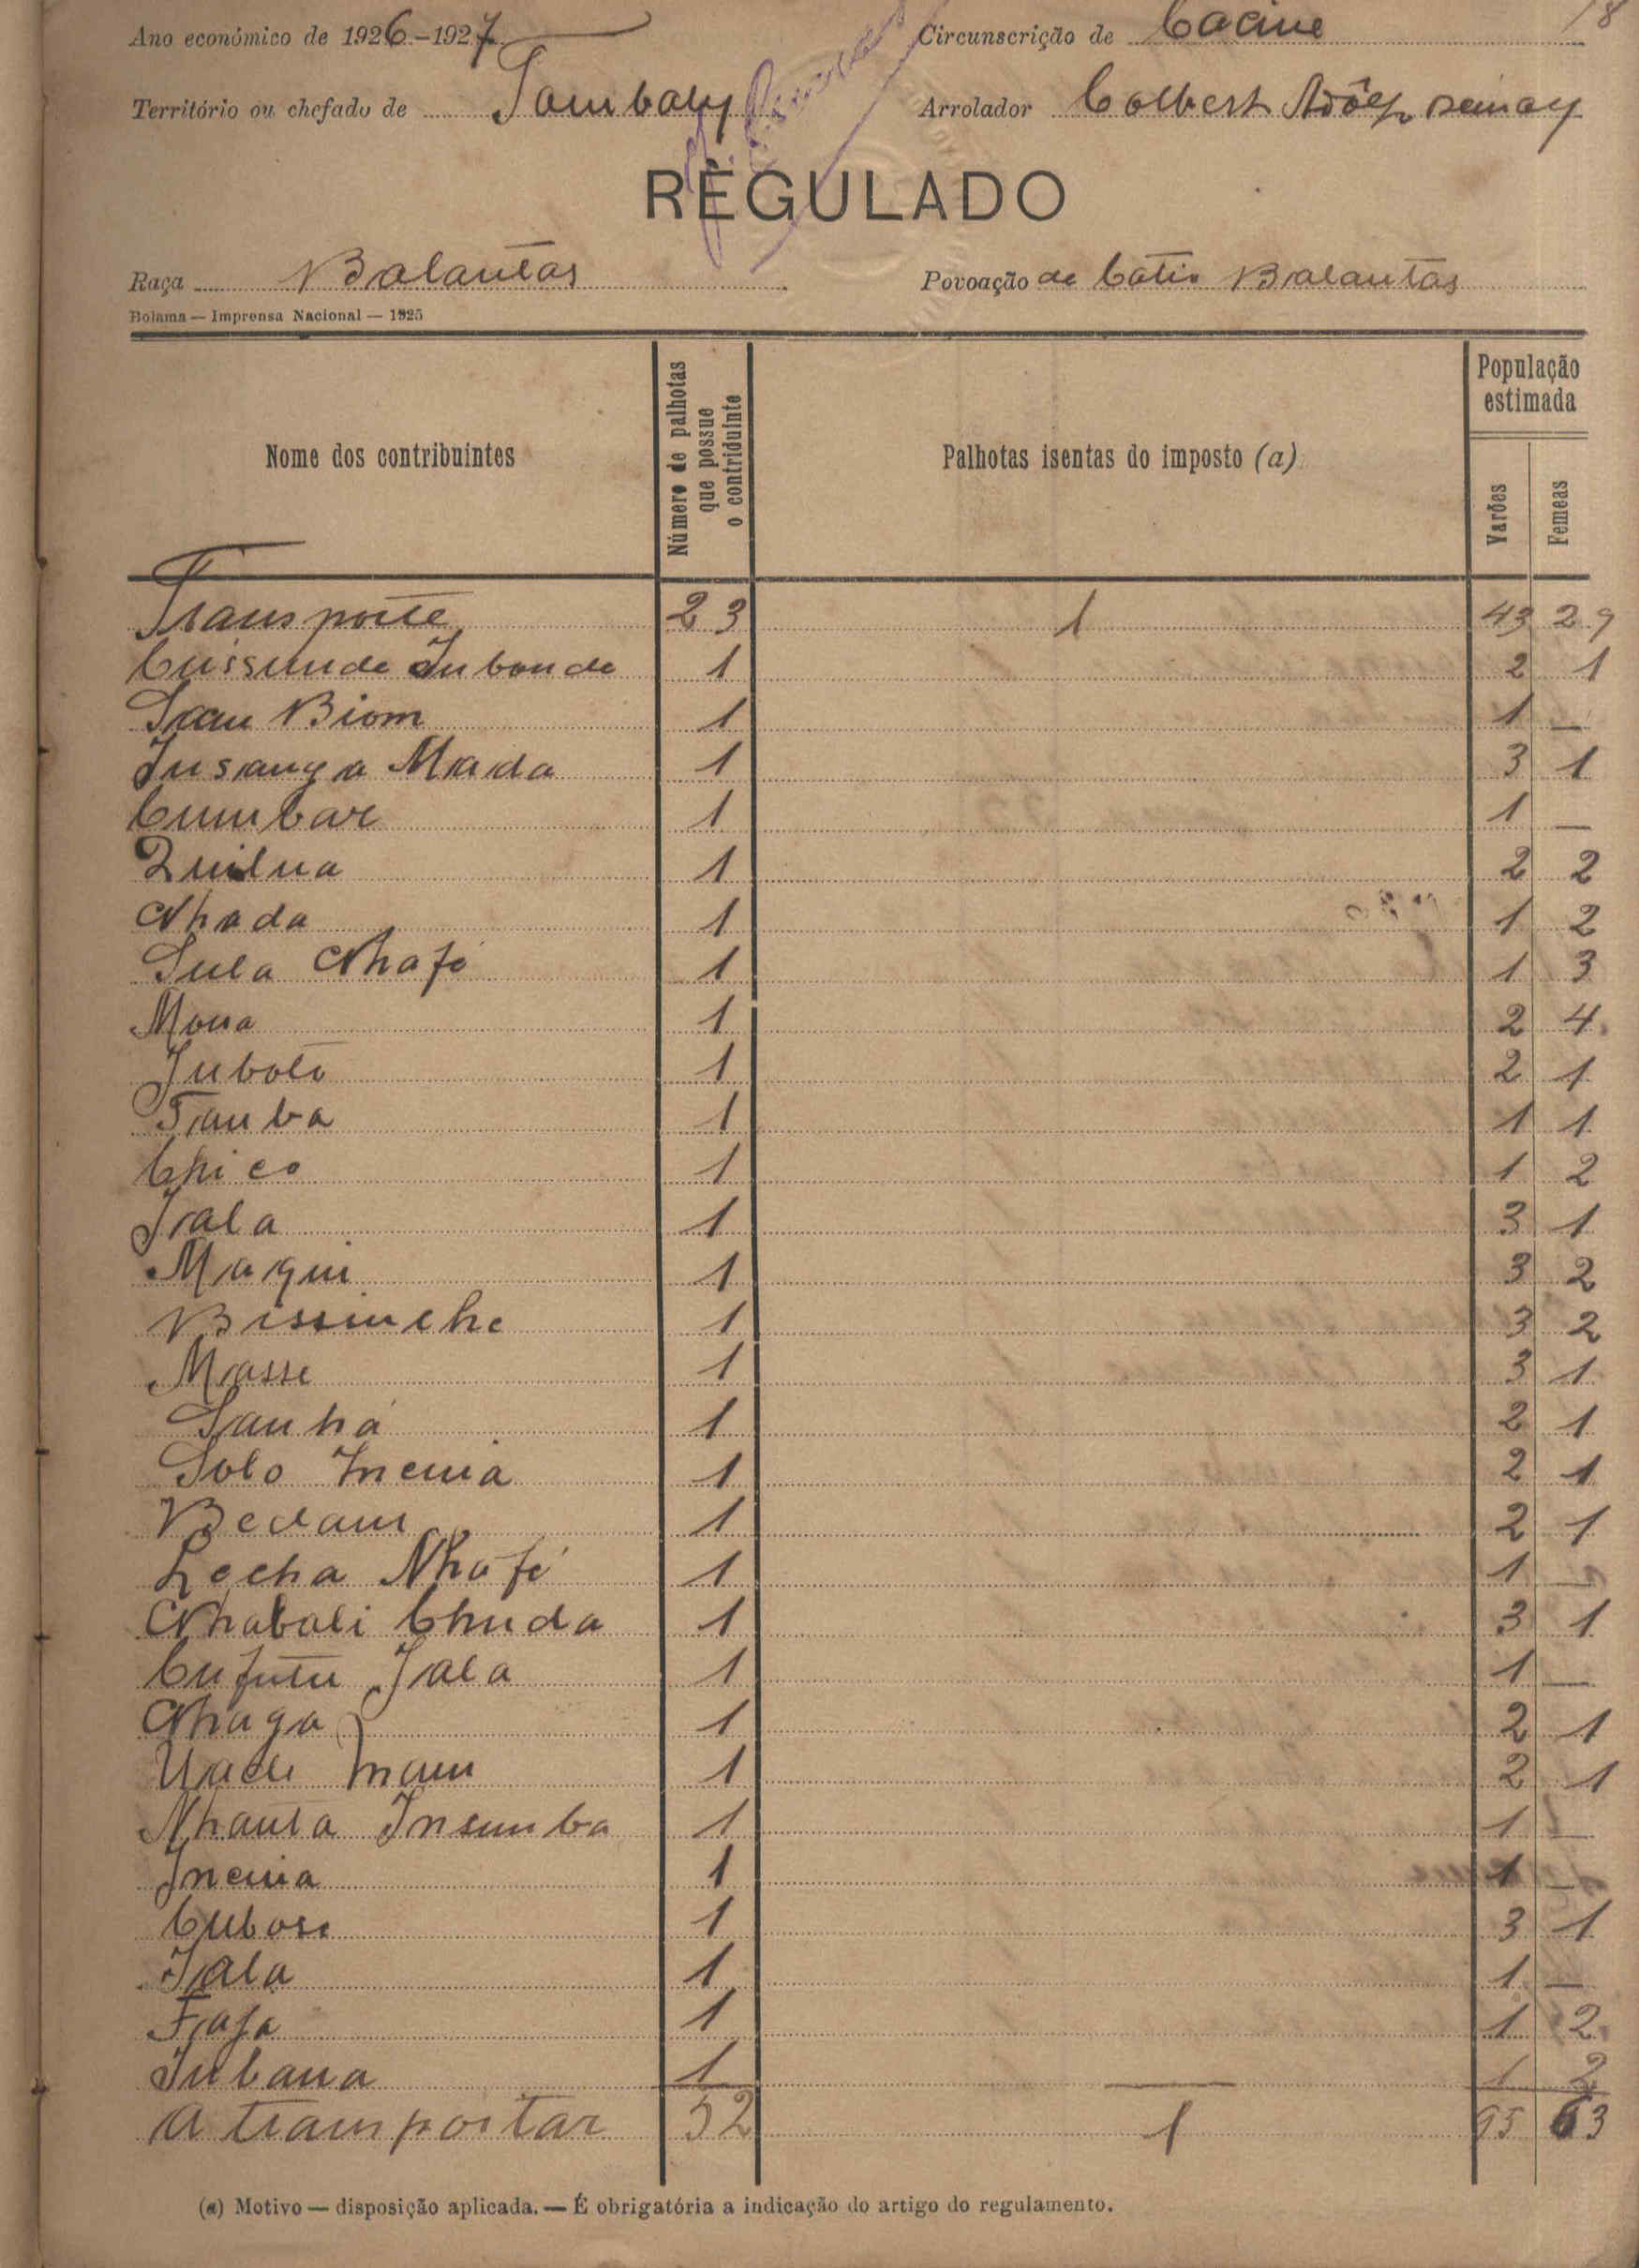 Ano económico de 1926-1927 Circunscrição de Cacine 18
Território ou chefado de Tombaly Arrolador Colbert Adólfo
REGULADO
Raça Balantas Povoação de Catió Balantas
Bolama — Imprensa Nacional — 1925
Nome dos contribuintes Número de palhotas que possue o contribuinte Palhotas isentas do imposto (a) População estimada
Varões Femeas
Transporte 23 1 43 29
Cussunde Inbonde 1 2 1
Iran Biom 1 1 —
Insanga Mada 1 3 1
Cumbar 1 1 —
Quilua 1 2 2
Nhada 1 1 2
Sula Nhafé 1 1 3
Mona 1 2 4
Inboto 1 2 1
Tamba 1 1 1
Chico 1 1 2
Iala 1 3 1
Maqui 1 3 2
Bissinche 1 3 2
Masse 1 3 1
Sanhá 1 2 1
Solo Incuia 1 2 1
Bedam 1 2 1
Lecha Nhafé 1 1 —
Nhabali Chuda 1 3 1
Cufute Iala 1 1 —
Nhaga 1 2 1
Uade Inam 1 2 1
Nhanta Insumba 1 1 —
Incuia 1 1 —
Cubose 1 3 1
Iala 1 1 —
Fafa 1 1 2
Inbana 1 — 1 2
A transportar 52 1 95 63
(a) Motivo — disposição aplicada. — É obrigatória a indicação do artigo do regulamento.